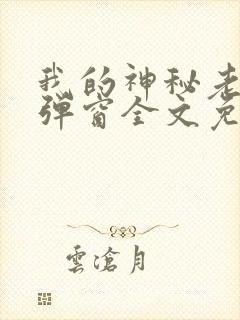 我的神秘老
弹窗全文免
雲滄月